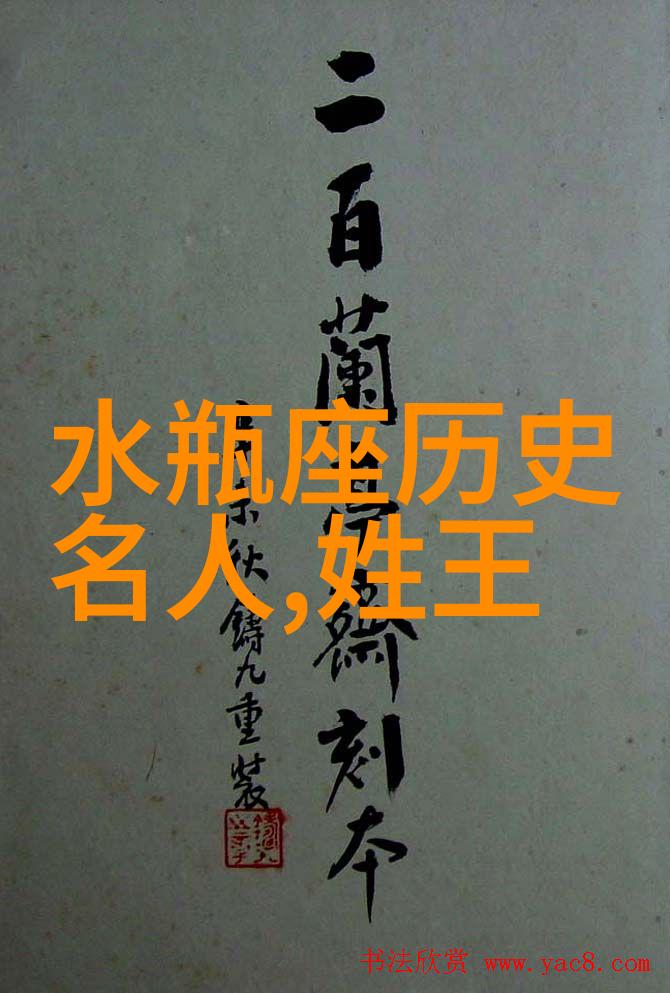 二百蘭亭齋刻本
未秋鑄九重裝
水瓶座历史
名人,姓王
书法欣赏 www.yac8.com